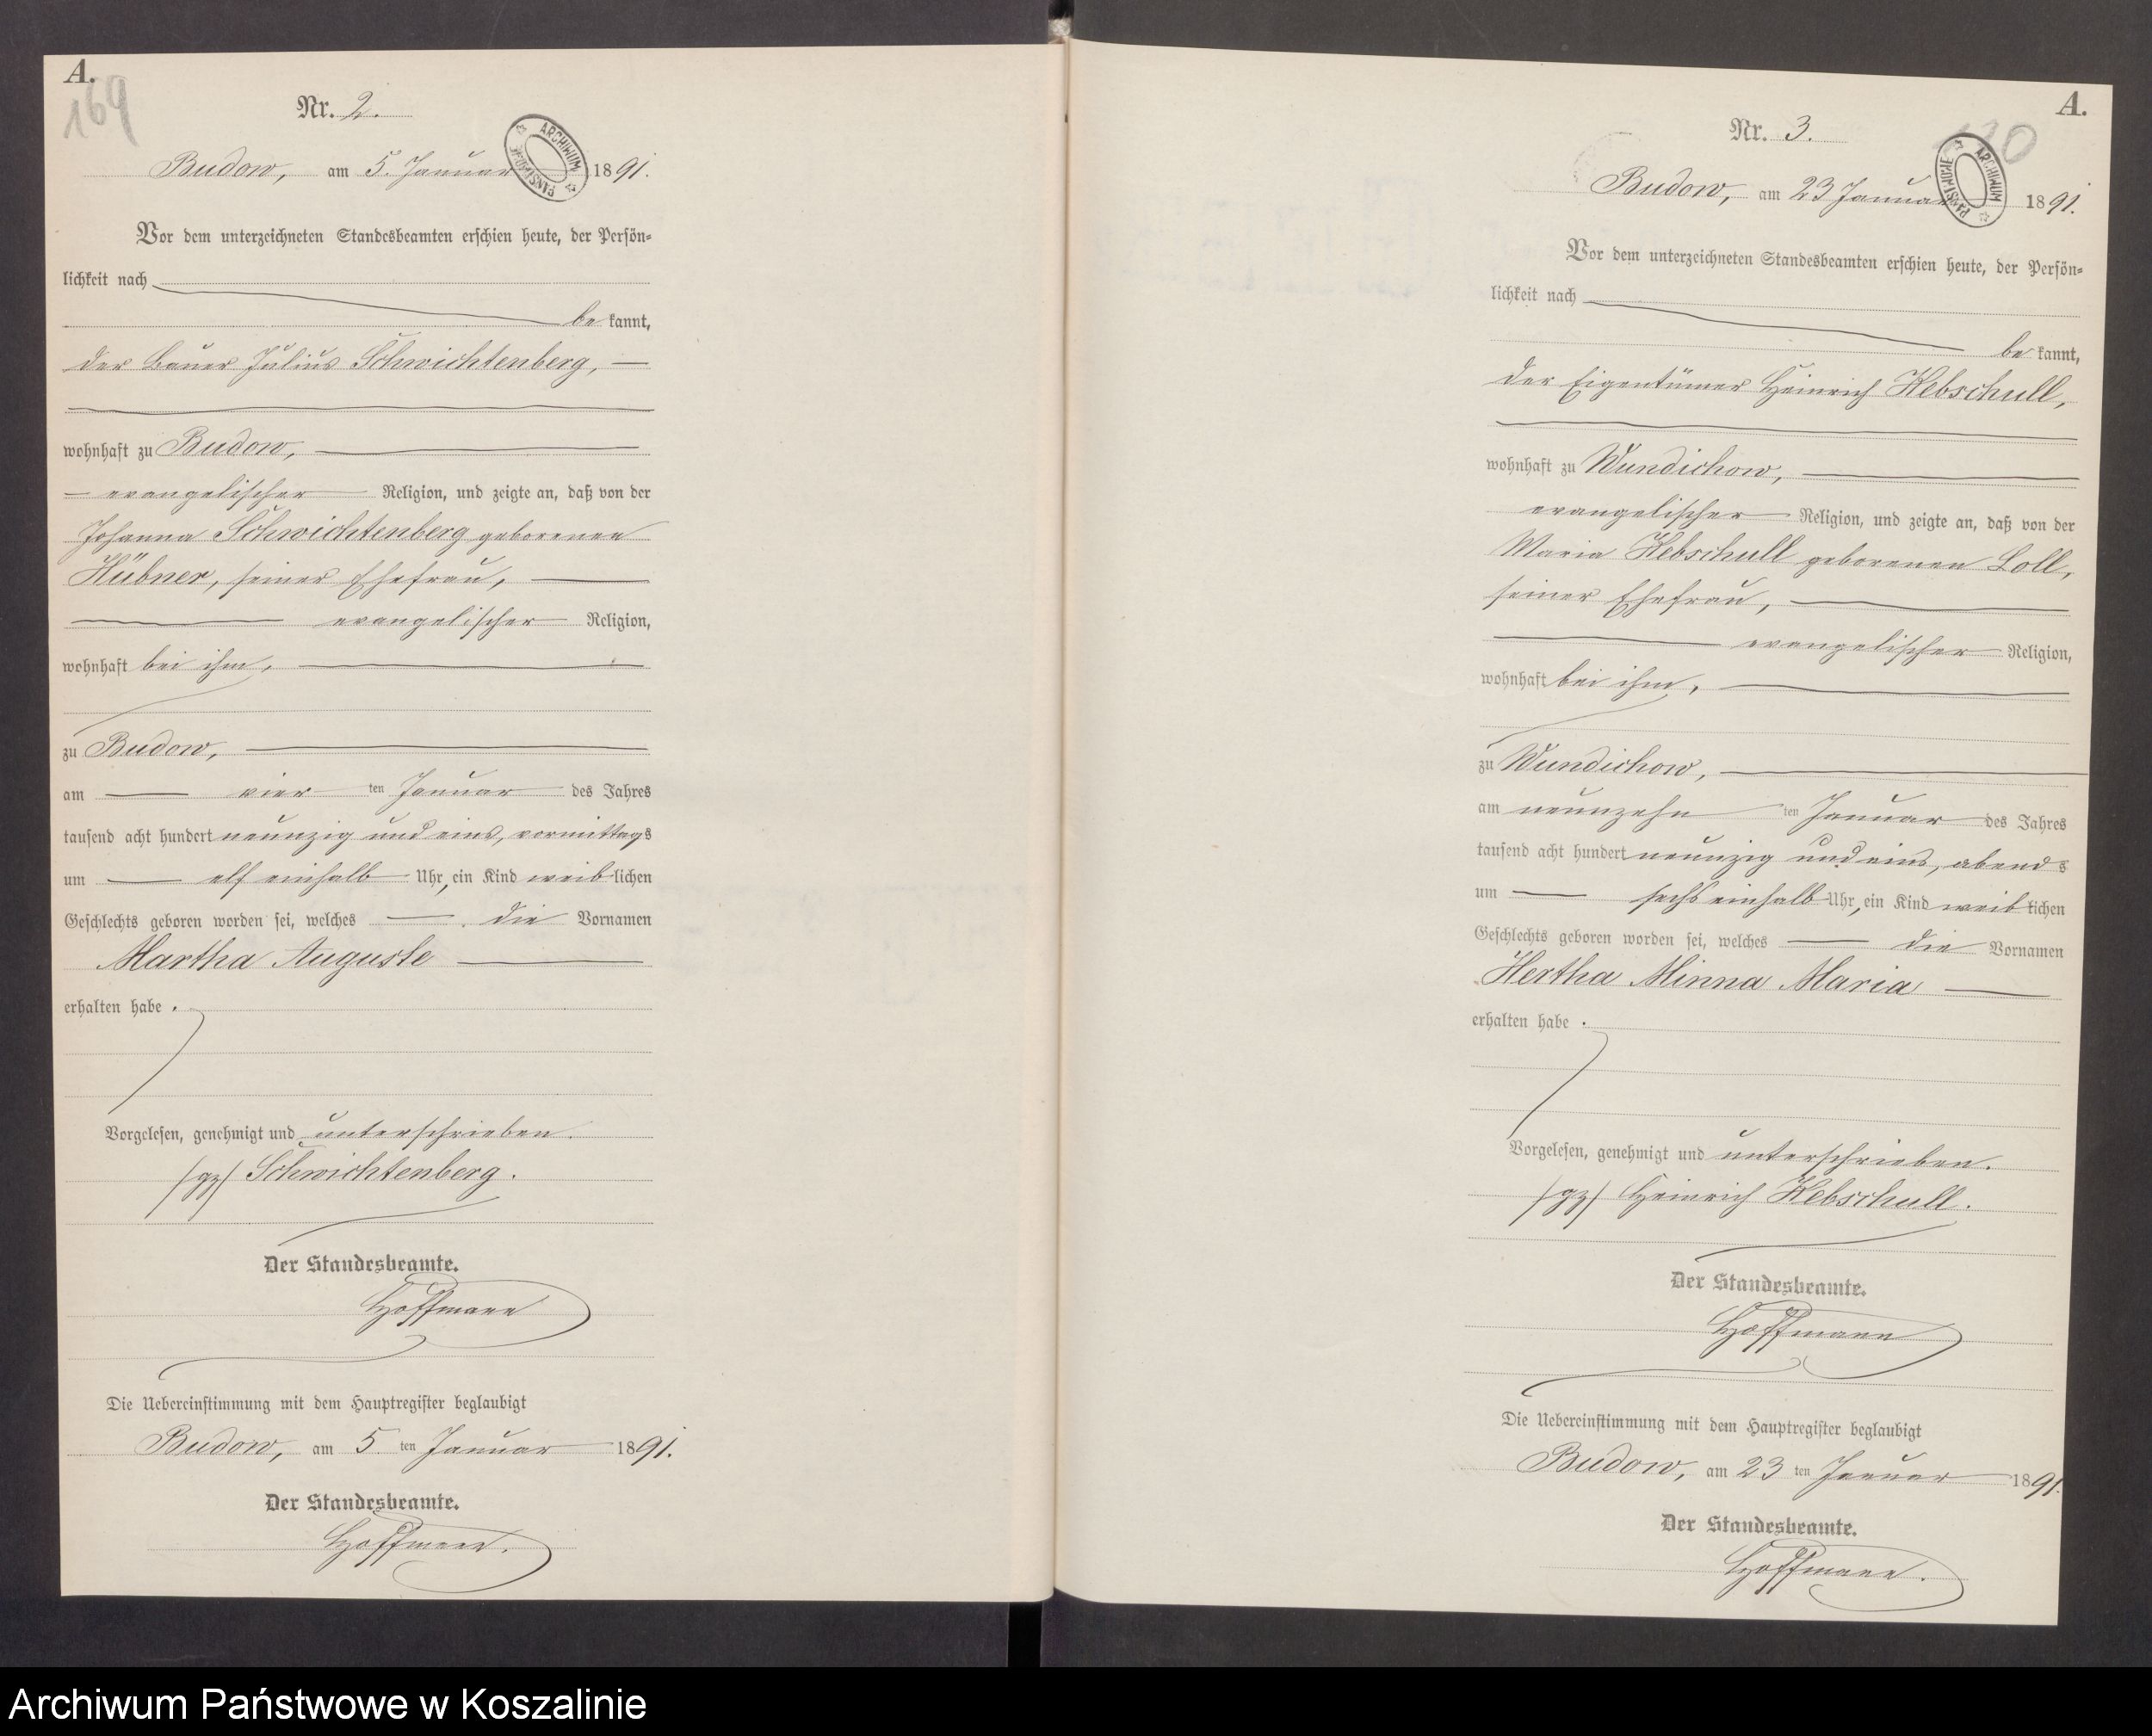 A.
169
Nr. 2.
ARCHIWUM PAŃSTWOWE
Budow, am 5. Januar 1891.
Vor dem unterzeichneten Standesbeamten erschien heute, der Persön-
lichkeit nach
bekannt,
der Bauer Julius Schwichtenberg,
wohnhaft zu Budow,
evangelischer Religion, und zeigte an, daß von der
Johanna Schwichtenberg geborenen
Hübner, seiner Ehefrau,
evangelischer Religion,
wohnhaft bei ihm,
zu Budow,
am vier ten Januar des Jahres
tausend acht hundert neunzig und eins, vormittags
um elf einhalb Uhr, ein Kind weiblichen
Geschlechts geboren worden sei, welches die Vornamen
Martha Auguste
erhalten habe.
Vorgelesen, genehmigt und unterschrieben.
/gz/ Schwichtenberg.
Der Standesbeamte.
Hoffmann
Die Uebereinstimmung mit dem Hauptregister beglaubigt
Budow, am 5 ten Januar 1891.
Der Standesbeamte.
Hoffmann.
A.
Nr. 3.
ARCHIWUM PAŃSTWOWE
Budow, am 23 Januar 1891.
Vor dem unterzeichneten Standesbeamten erschien heute, der Persön-
lichkeit nach
bekannt,
der Eigentümer Heinrich Kebschull,
wohnhaft zu Wundichow,
evangelischer Religion, und zeigte an, daß von der
Maria Kebschull geborenen Loll,
seiner Ehefrau,
evangelischer Religion,
wohnhaft bei ihm,
zu Wundichow,
am neunzehn ten Januar des Jahres
tausend acht hundert neunzig und eins, abends
um sechs einhalb Uhr, ein Kind weiblichen
Geschlechts geboren worden sei, welches die Vornamen
Hertha Minna Maria
erhalten habe.
Vorgelesen, genehmigt und unterschrieben.
/gz/ Heinrich Kebschull.
Der Standesbeamte.
Hoffmann
Die Uebereinstimmung mit dem Hauptregister beglaubigt
Budow, am 23 ten Januar 1891.
Der Standesbeamte.
Hoffmann.
Archiwum Państwowe w Koszalinie